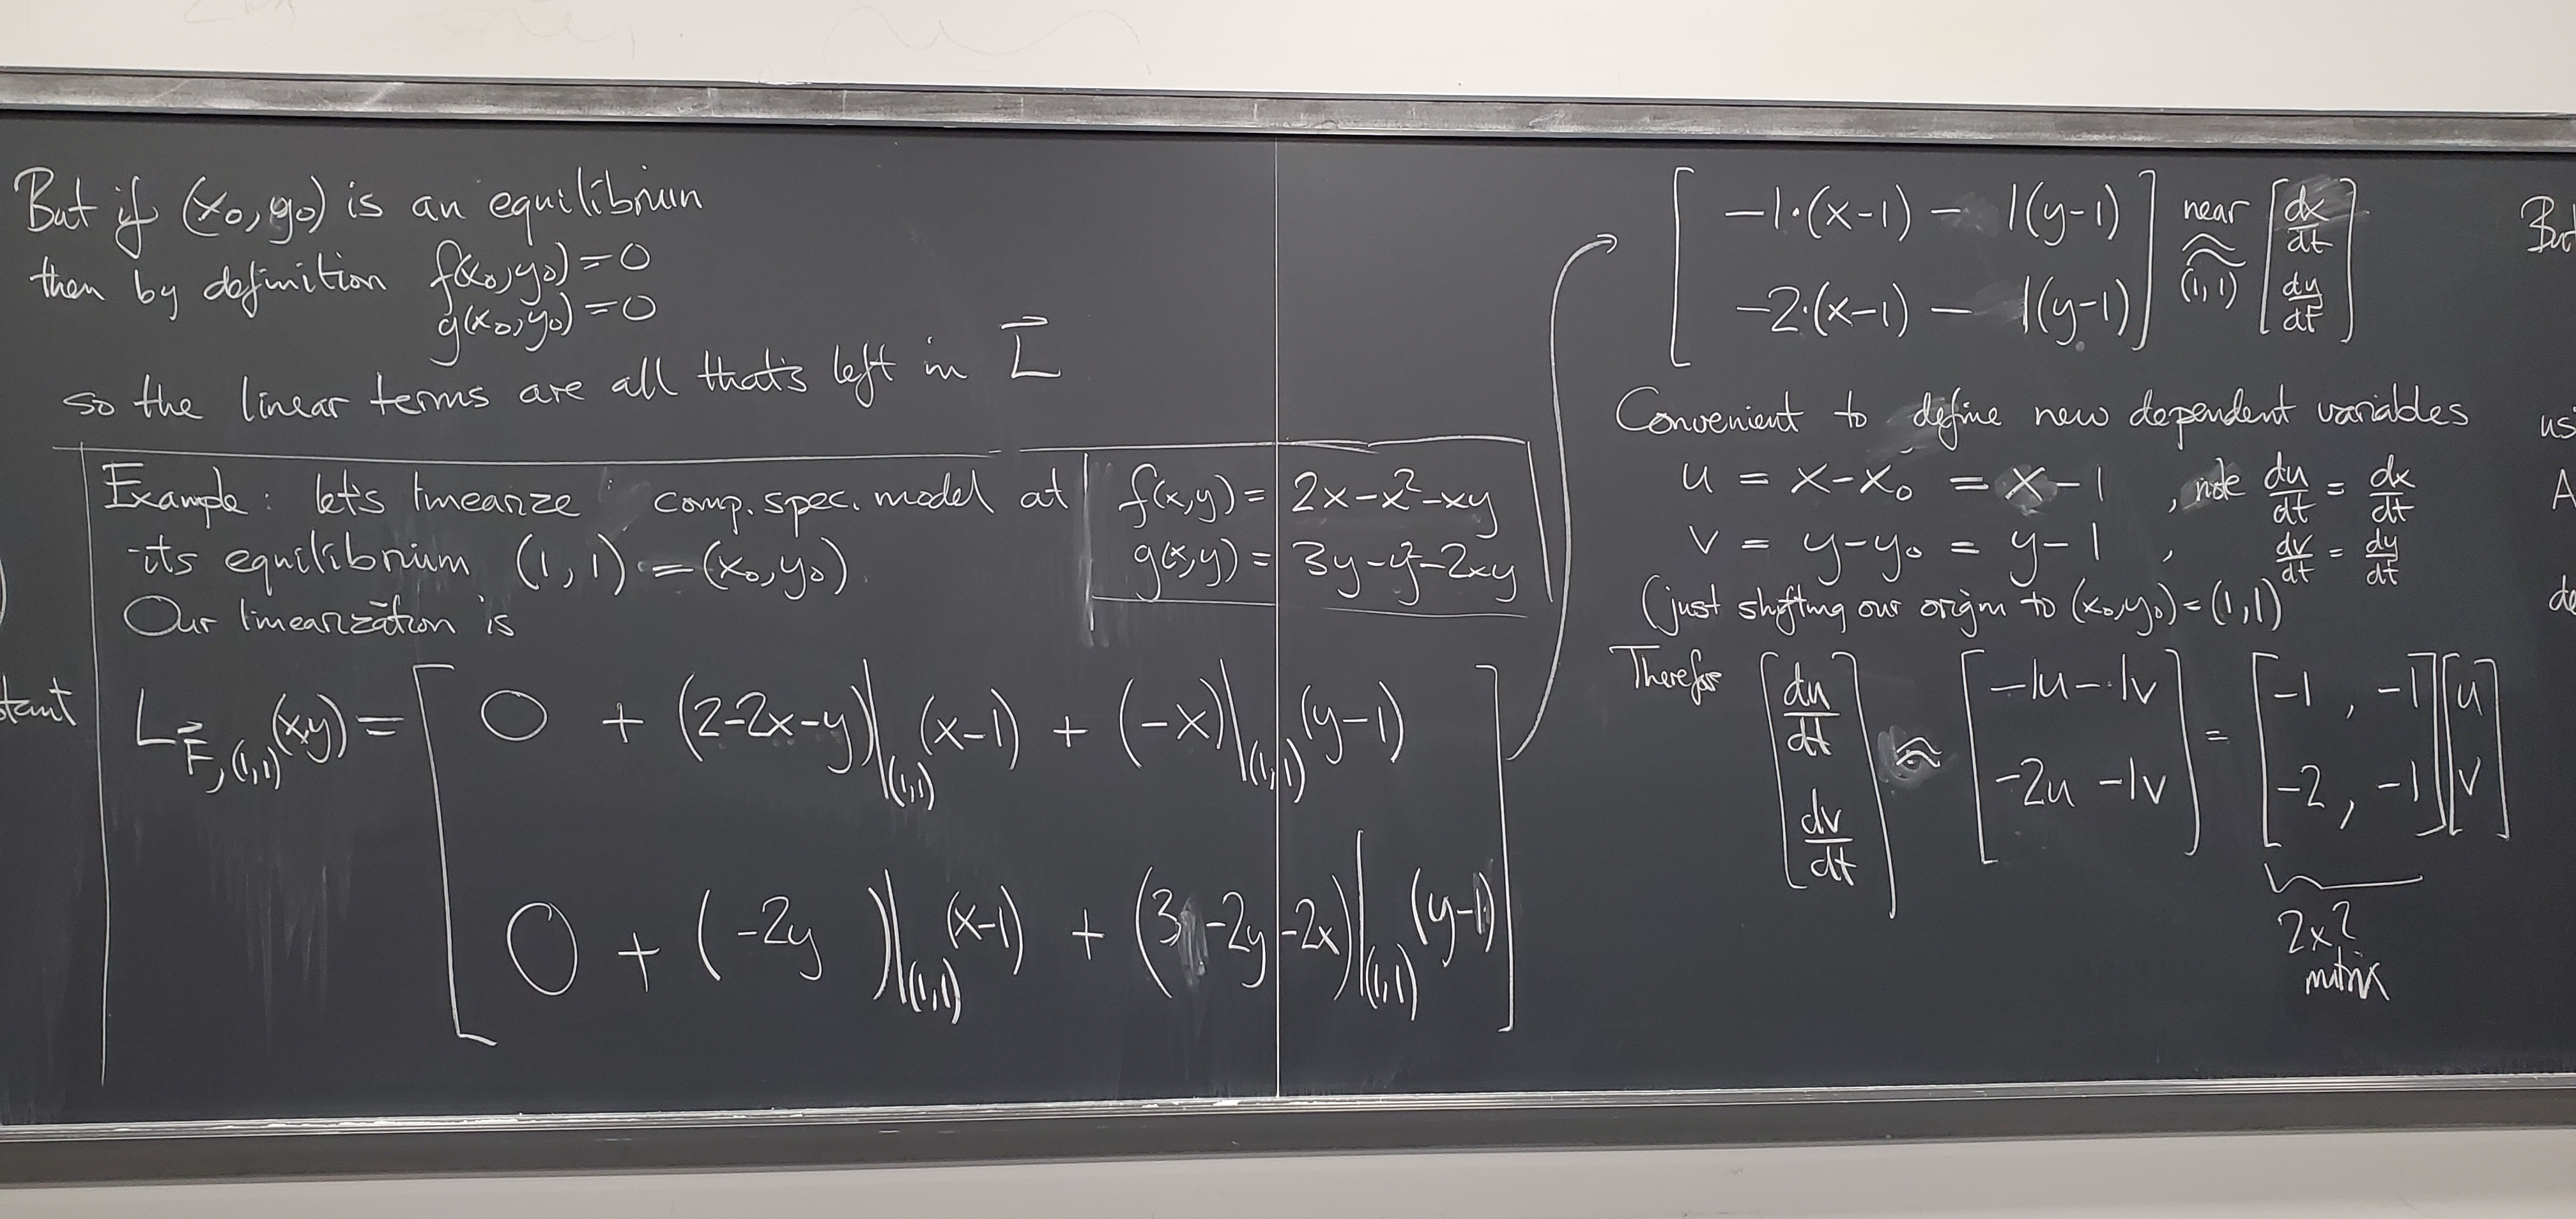 But if (x₀,y₀) is an equilibrium
then by definition f(x₀,y₀)=0
g(x₀,y₀)=0
so the linear terms are all that's left in L⃗
Example: let's linearize comp. spec. model at
its equilibrium (1,1) = (x₀,y₀)
f(x,y) = 2x-x²-xy
g(x,y) = 3y-y²-2xy
Our linearization is
L_{F⃗,(1,1)}(x,y) = [ 0 + (2-2x-y)|_(1,1) (x-1) + (-x)|_(1,1) (y-1)
0 + (-2y )|_(1,1) (x-1) + (3 -2y-2x)|_(1,1) (y-1) ]
[ -1·(x-1) - 1(y-1)
-2·(x-1) - 1(y-1) ] near ≈ (1,1) [ dx/dt
dy/dt ]
Convenient to define new dependent variables
u = x-x₀ = x-1 , note du/dt = dx/dt
v = y-y₀ = y-1 , dv/dt = dy/dt
(just shifting our origin to (x₀,y₀)=(1,1)
Therefore [ du/dt
dv/dt ] ≈ [ -1u-1v
-2u -1v ] = [ -1 , -1
-2 , -1 ] [ u
v ]
2x2
matrix
But
us
A
de
stant